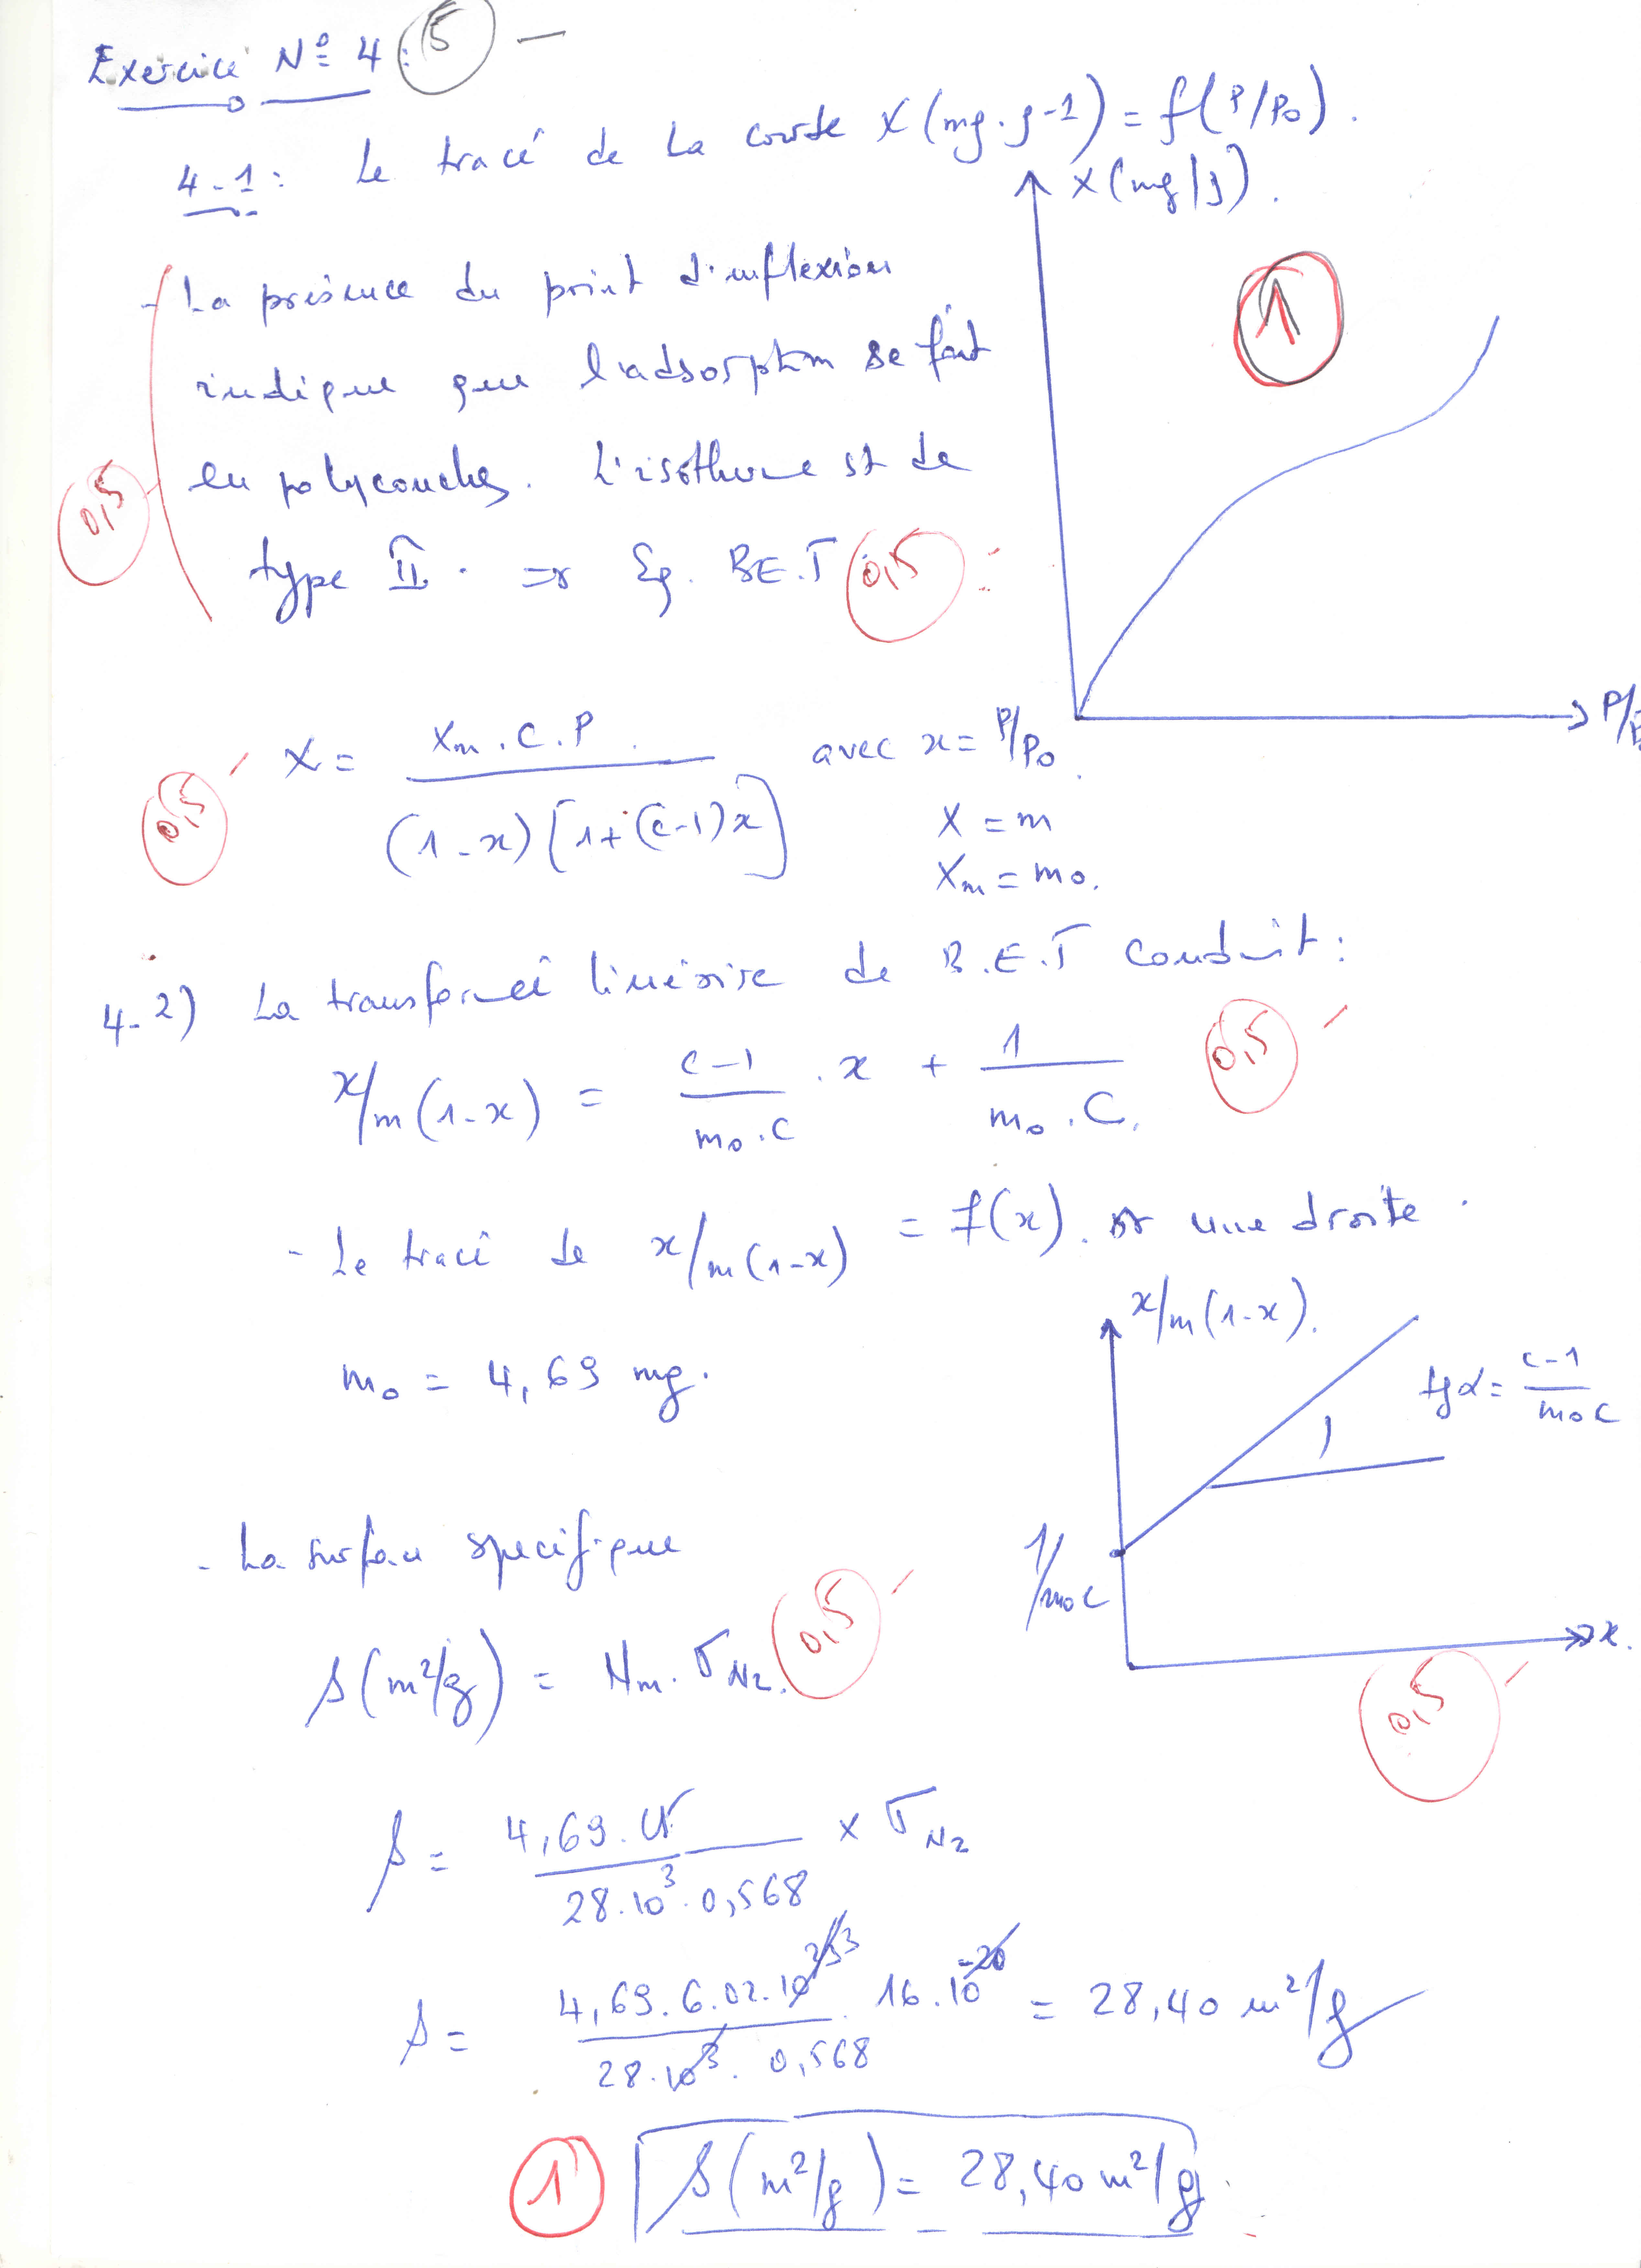 Exercice N° 4 : 5
4-1: Le tracé de la courbe X(mg.g-1) = f(P/P0).
X(mg/g).
1
P/P
- La présence du point d'inflexion
indique que l'adsorption se fait
en polycouches. L'isotherme est de
type II. => Eq. B.E.T
0,5
0,5
X = Xm.C.P / (1-x)[1+(c-1)x] avec x = P/P0
X = m
Xm = m0.
0,5
4-2) La transformée linéaire de B.E.T conduit :
x/m(1-x) = c-1/m0.C . x + 1/m0.C.
0,5
- Le tracé de x/m(1-x) = f(x). est une droite.
x/m(1-x).
tgα = c-1/m0C
1/m0C
x.
0,5
m0 = 4,69 mg.
- La surface specifique
S(m²/g) = Nm.σN2.
0,5
S = 4,69.N / 28.10³.0,568 x σN2
S = 4,69.6.02.10²³ / 28.10³.0,568 . 16.10-20 = 28,40 m²/g
1 S(m²/g) = 28,40 m²/g